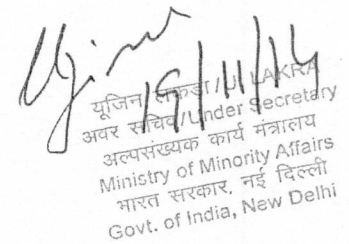 19/11/14
यूजिन लकड़ा / U. LAKRA
अवर सचिव/Under Secretary
अल्पसंख्यक कार्य मंत्रालय
Ministry of Minority Affairs
भारत सरकार, नई दिल्ली
Govt. of India, New Delhi